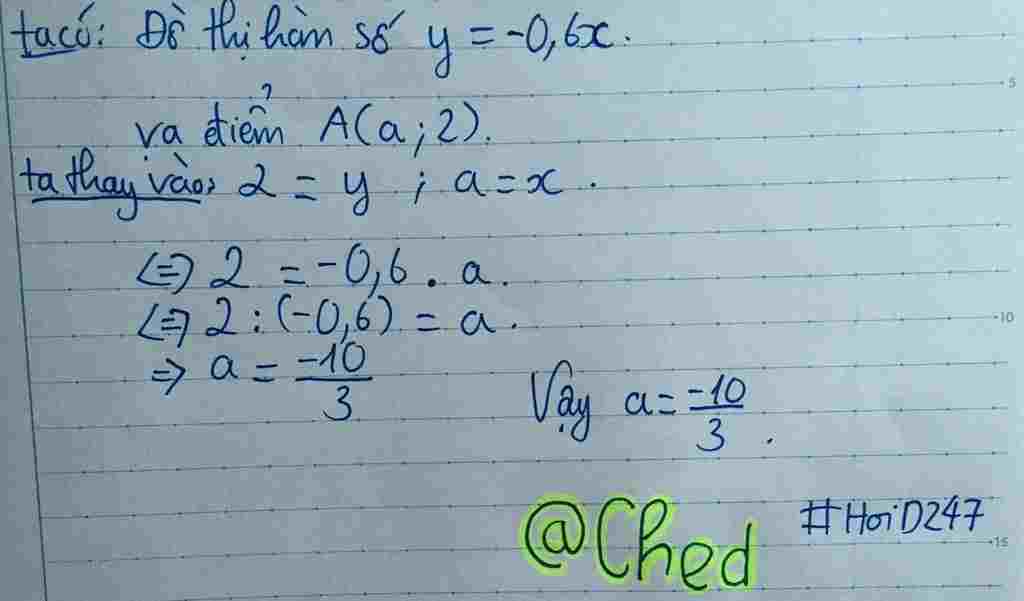 ta có: Đồ thị hàm số y = -0,6x.
và điểm A(a; 2).
ta thay vào: 2 = y ; a = x.
<=> 2 = -0,6 . a.
<=> 2 : (-0,6) = a.
=> a = -10/3
Vậy a = -10/3.
@Ched
#HoiD247
5
10
15